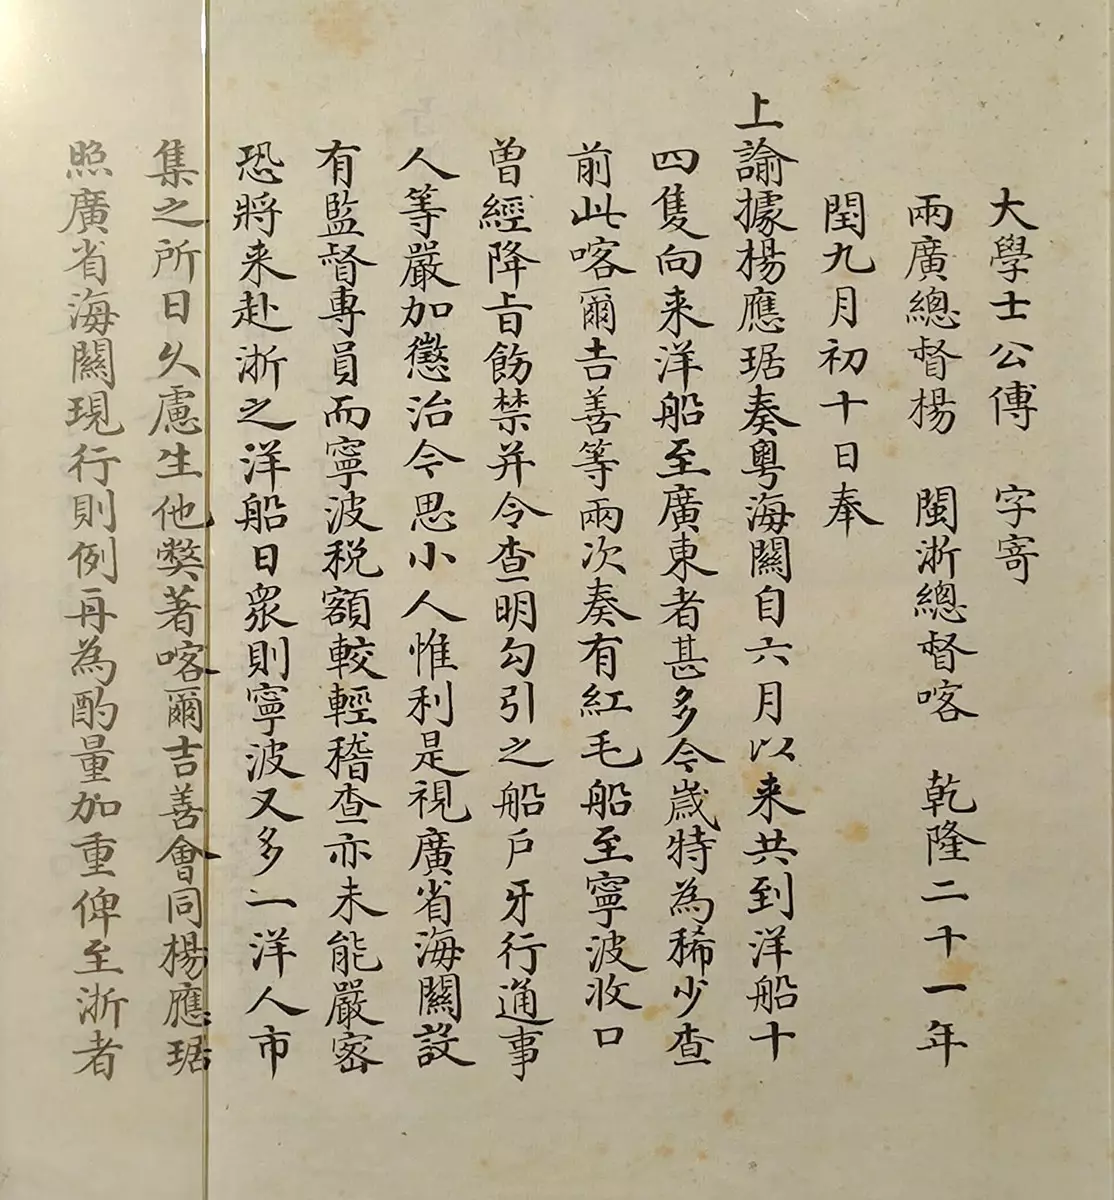 大學士公傅　字寄
兩廣總督楊　閩浙總督喀　乾隆二十一年
閏九月初十日奉
上諭據楊應琚奏粵海關自六月以来共到洋船十
四隻向来洋船至廣東者甚多今嵗特為稀少查
前此喀爾吉善等兩次奏有紅毛船至寧波收口
曽經降旨飭禁并令查明勾引之船戶牙行通事
人等嚴加懲治今思小人惟利是視廣省海關設
有監督專員而寧波税額較輕稽查亦未能嚴宻
恐將来赴浙之洋船日衆則寧波又多一洋人市
集之所日久慮生他獘著喀爾吉善會同楊應琚
照廣省海關現行則例再為酌量加重俾至浙者